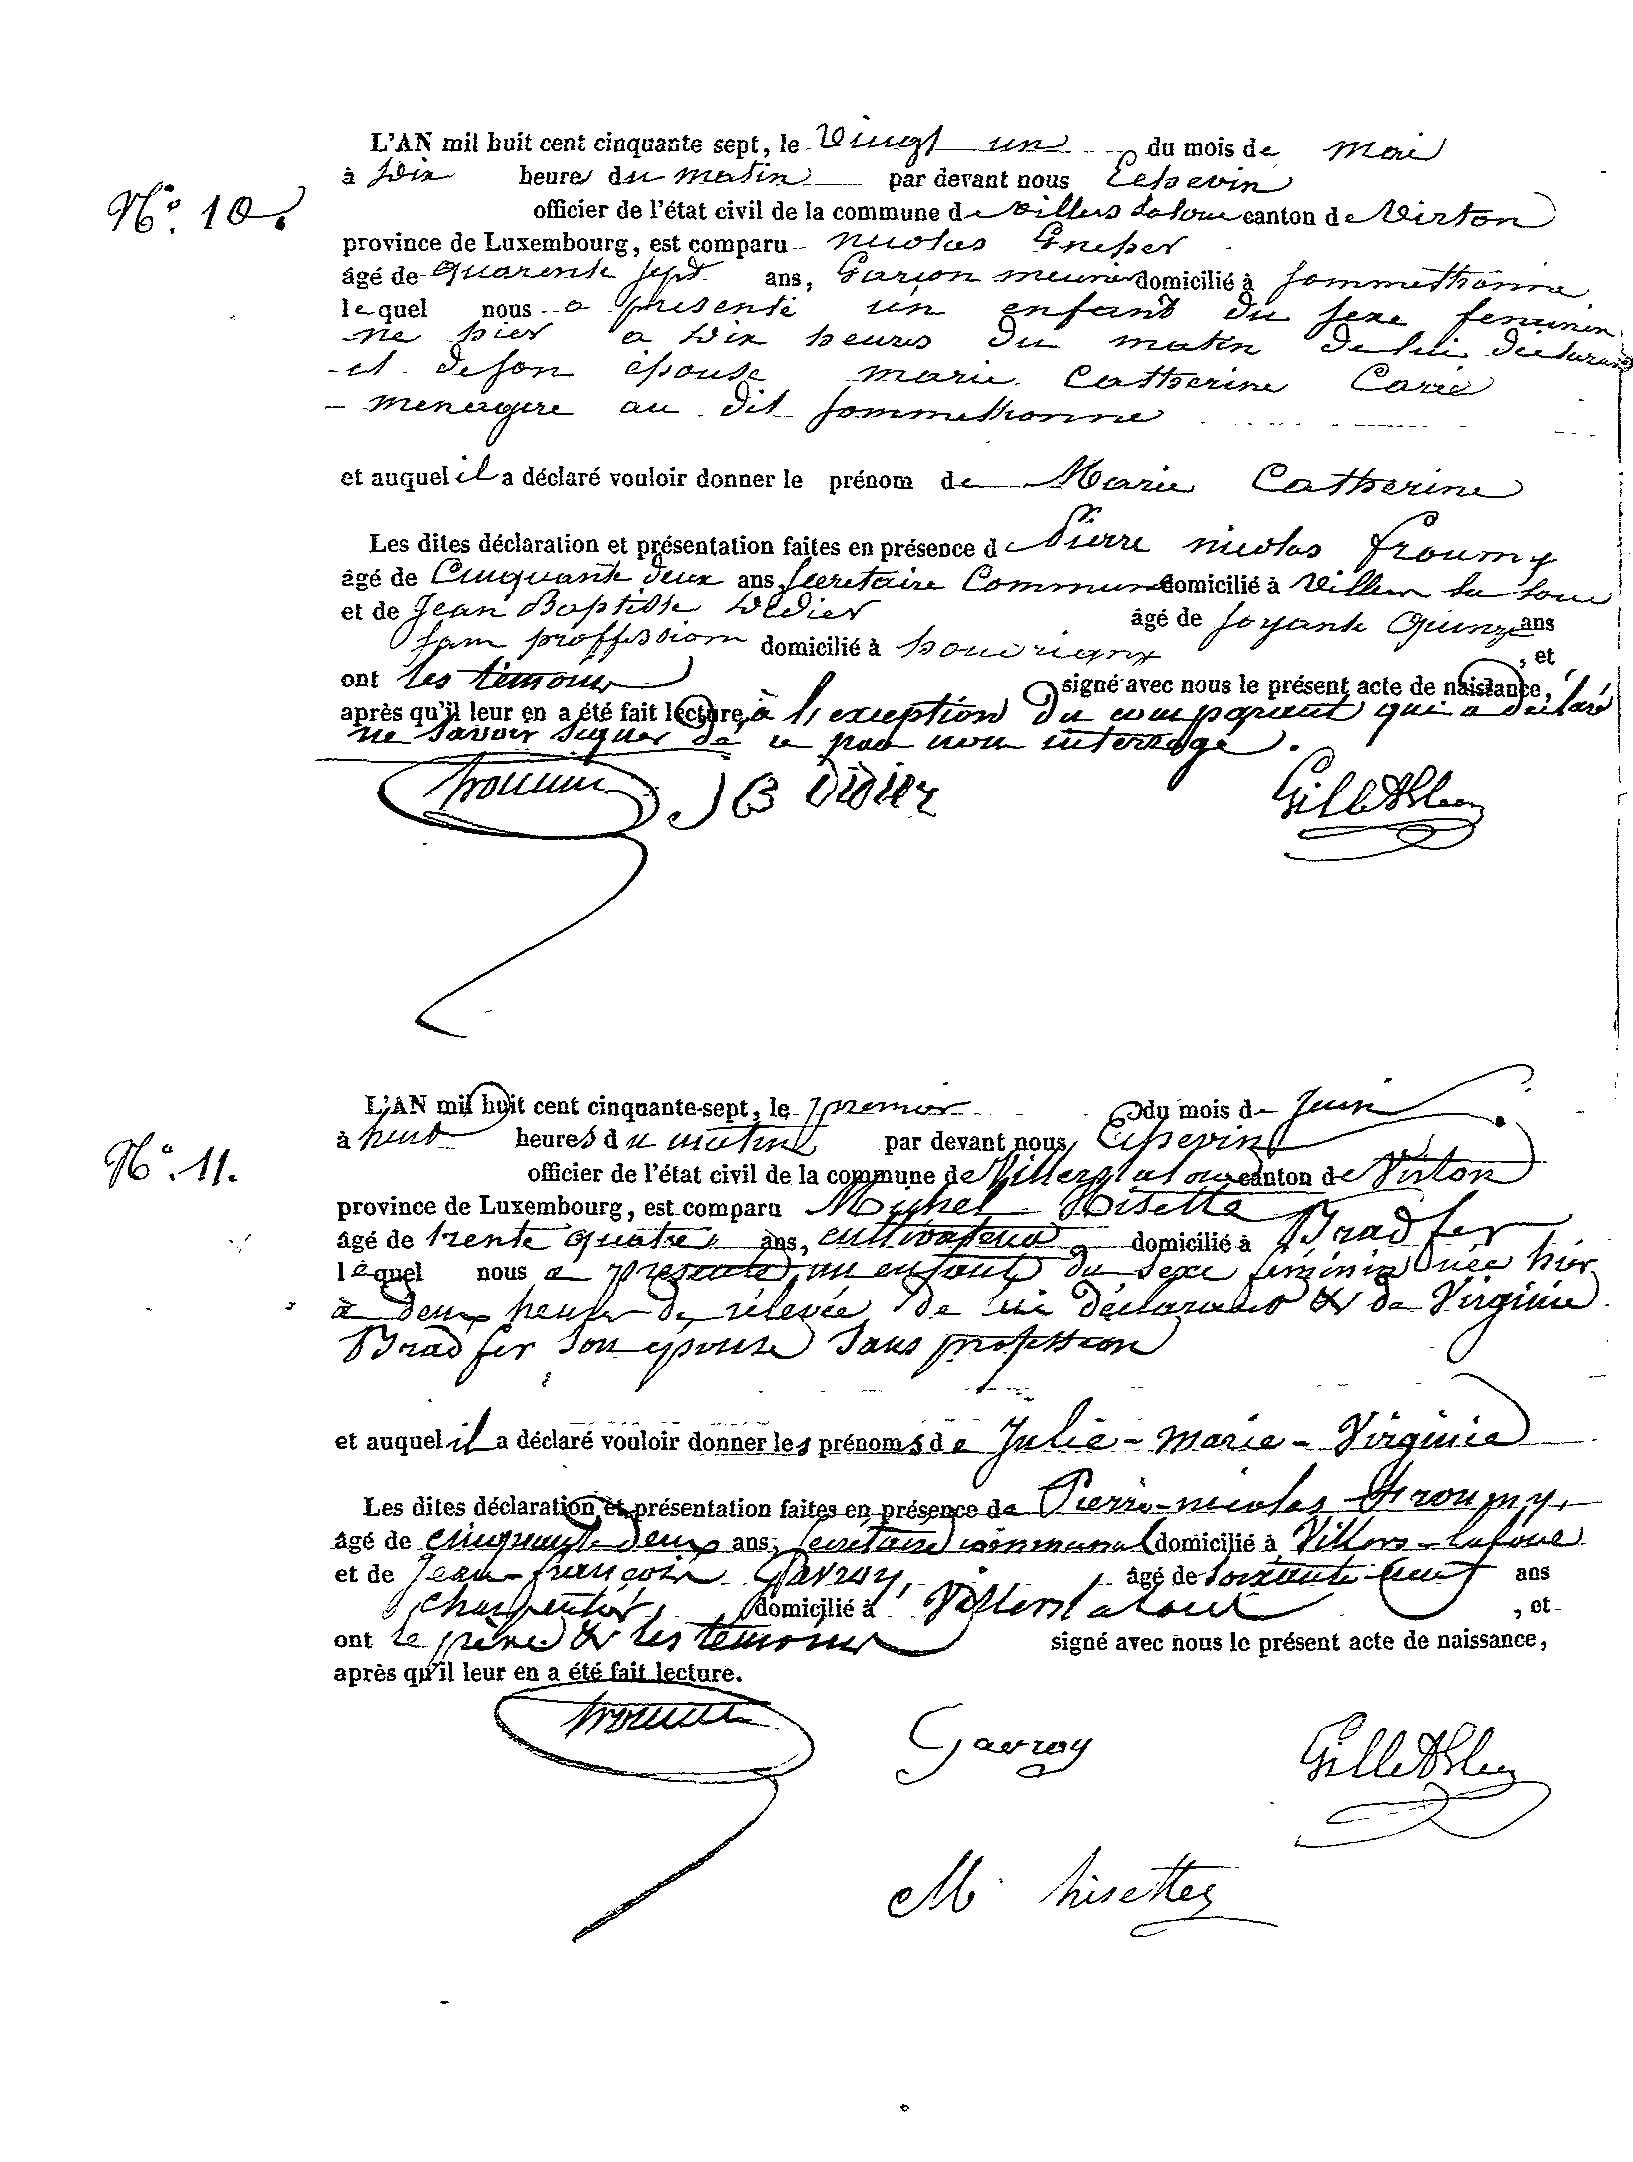 L'AN mil huit cent cinquante sept, le Vingt un du mois de mai
à Dix heures du matin par devant nous Echevin
N.° 10.
officier de l'état civil de la commune de Villers la loue canton de Virton
province de Luxembourg, est comparu nicolas
âgé de quarente sept ans, Garçon meunier domicilié à Sommethonne
lequel nous a presenté un enfant du sexe feminin
né hier a dix heures du matin de lui déclarant
et de son épouse marie Catherine Carré
menagere au dit Sommethonne
et auquel il a déclaré vouloir donner le prénom de Marie Catherine
Les dites déclaration et présentation faites en présence de Pierre nicolas Froumy
âgé de Cinquante deux ans, secretaire Communal domicilié à Villers la loue
et de Jean Baptiste Didier âgé de soixante Quinze ans
sans proffession domicilié à houdrigny, et
ont les témoins signé avec nous le présent acte de naissance,
après qu'il leur en a été fait lecture, à l'exception du comparant qui a déclaré
ne savoir signer de ce par nous interrogé.
Froumy J B DIDIER
L'AN mil huit cent cinquante-sept, le premier du mois de Juin
à huit heures du matin par devant nous Echevin
N.° 11.
officier de l'état civil de la commune de Villers la loue canton de Virton
province de Luxembourg, est comparu Michel Hisette
âgé de trente quatre ans, cultivateur domicilié à Bradfer
lequel nous a présenté un enfant du sexe féminin née hier
à deux heures de rélevée de lui déclarant & de Virginie
Bradfer son épouse sans profession
et auquel il a déclaré vouloir donner les prénoms de Julie - Marie - Virginie
Les dites déclaration et présentation faites en présence de Pierre-nicolas Froumy,
âgé de cinquante-deux ans, secrétaire communal domicilié à Villers-laloue
et de Jean-françois Gavroy, âgé de soixante huit ans
charpentier, domicilié à Villers la loue, et
ont le père & les témoins signé avec nous le présent acte de naissance,
après qu'il leur en a été fait lecture.
Froumy Gavroy
M. hisette